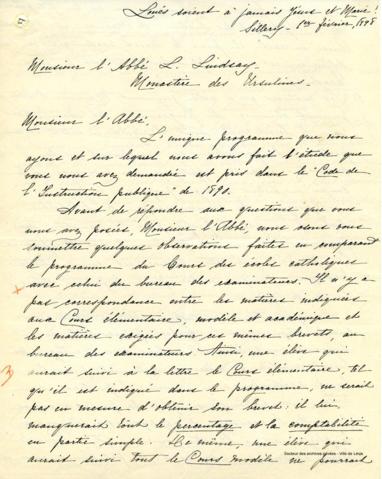 Loués soient à jamais Jésus et Marie!
Sillery - 1er février, 1898
Monsieur l'Abbé L. Lindsay -
Monastère des Ursulines -
Monsieur l'Abbé,
L'unique programme que nous
ayons et sur lequel nous avons fait l'étude que
vous nous avez demandée est pris dans le "Code de
l'Instruction publique" de 1890.
Avant de répondre aux questions que vous
nous avez posées, Monsieur l'Abbé, nous osons vous
soumettre quelques observations faites en comparant
le programme du Cours des écoles catholiques
avec celui du bureau des examinateurs. Il n'y a
pas correspondance entre les matières indiquées
aux Cours élémentaire, modèle et académique et
les matières exigées pour ces mêmes brevets, au
bureau des examinateurs. Ainsi, une élève qui
aurait suivi à la lettre le Cours élémentaire, tel
qu'il est indiqué dans le programme, ne serait
pas en mesure d'obtenir son brevet: il lui
manquerait tout le percentage et la comptabilité
en partie simple. De même, une élève qui
aurait suivi tout le Cours modèle ne pourrait
Secteur des archives privées - Ville de Lévis